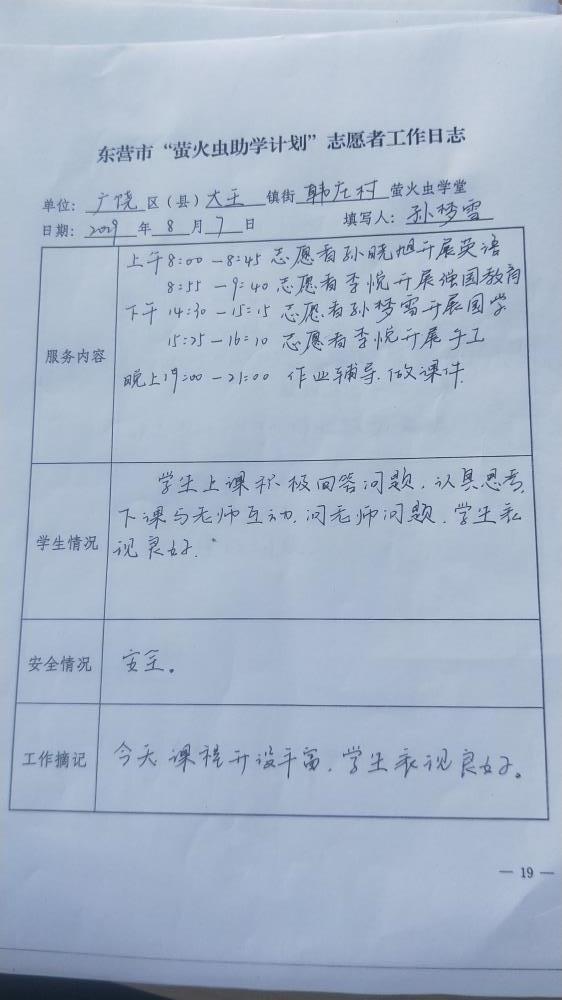 东营市“萤火虫助学计划”志愿者工作日志
单位：广饶区（县）大王镇街韩庄村萤火虫学堂
日期：2029年8月7日 填写人：孙梦雪
服务内容
上午8:00—8:45 志愿者孙晓旭开展英语
8:55—9:40 志愿者李悦开展强国教育
下午14:30—15:15 志愿者孙梦雪开展国学
15:25—16:10 志愿者李悦开展手工
晚上19:00—21:00 作业辅导.做课件.
学生情况
学生上课积极回答问题，认真思考，
下课与老师互动，问老师问题，学生表
现良好.
安全情况
安全。
工作摘记
今天课程开设丰富，学生表现良好。
— 19 —